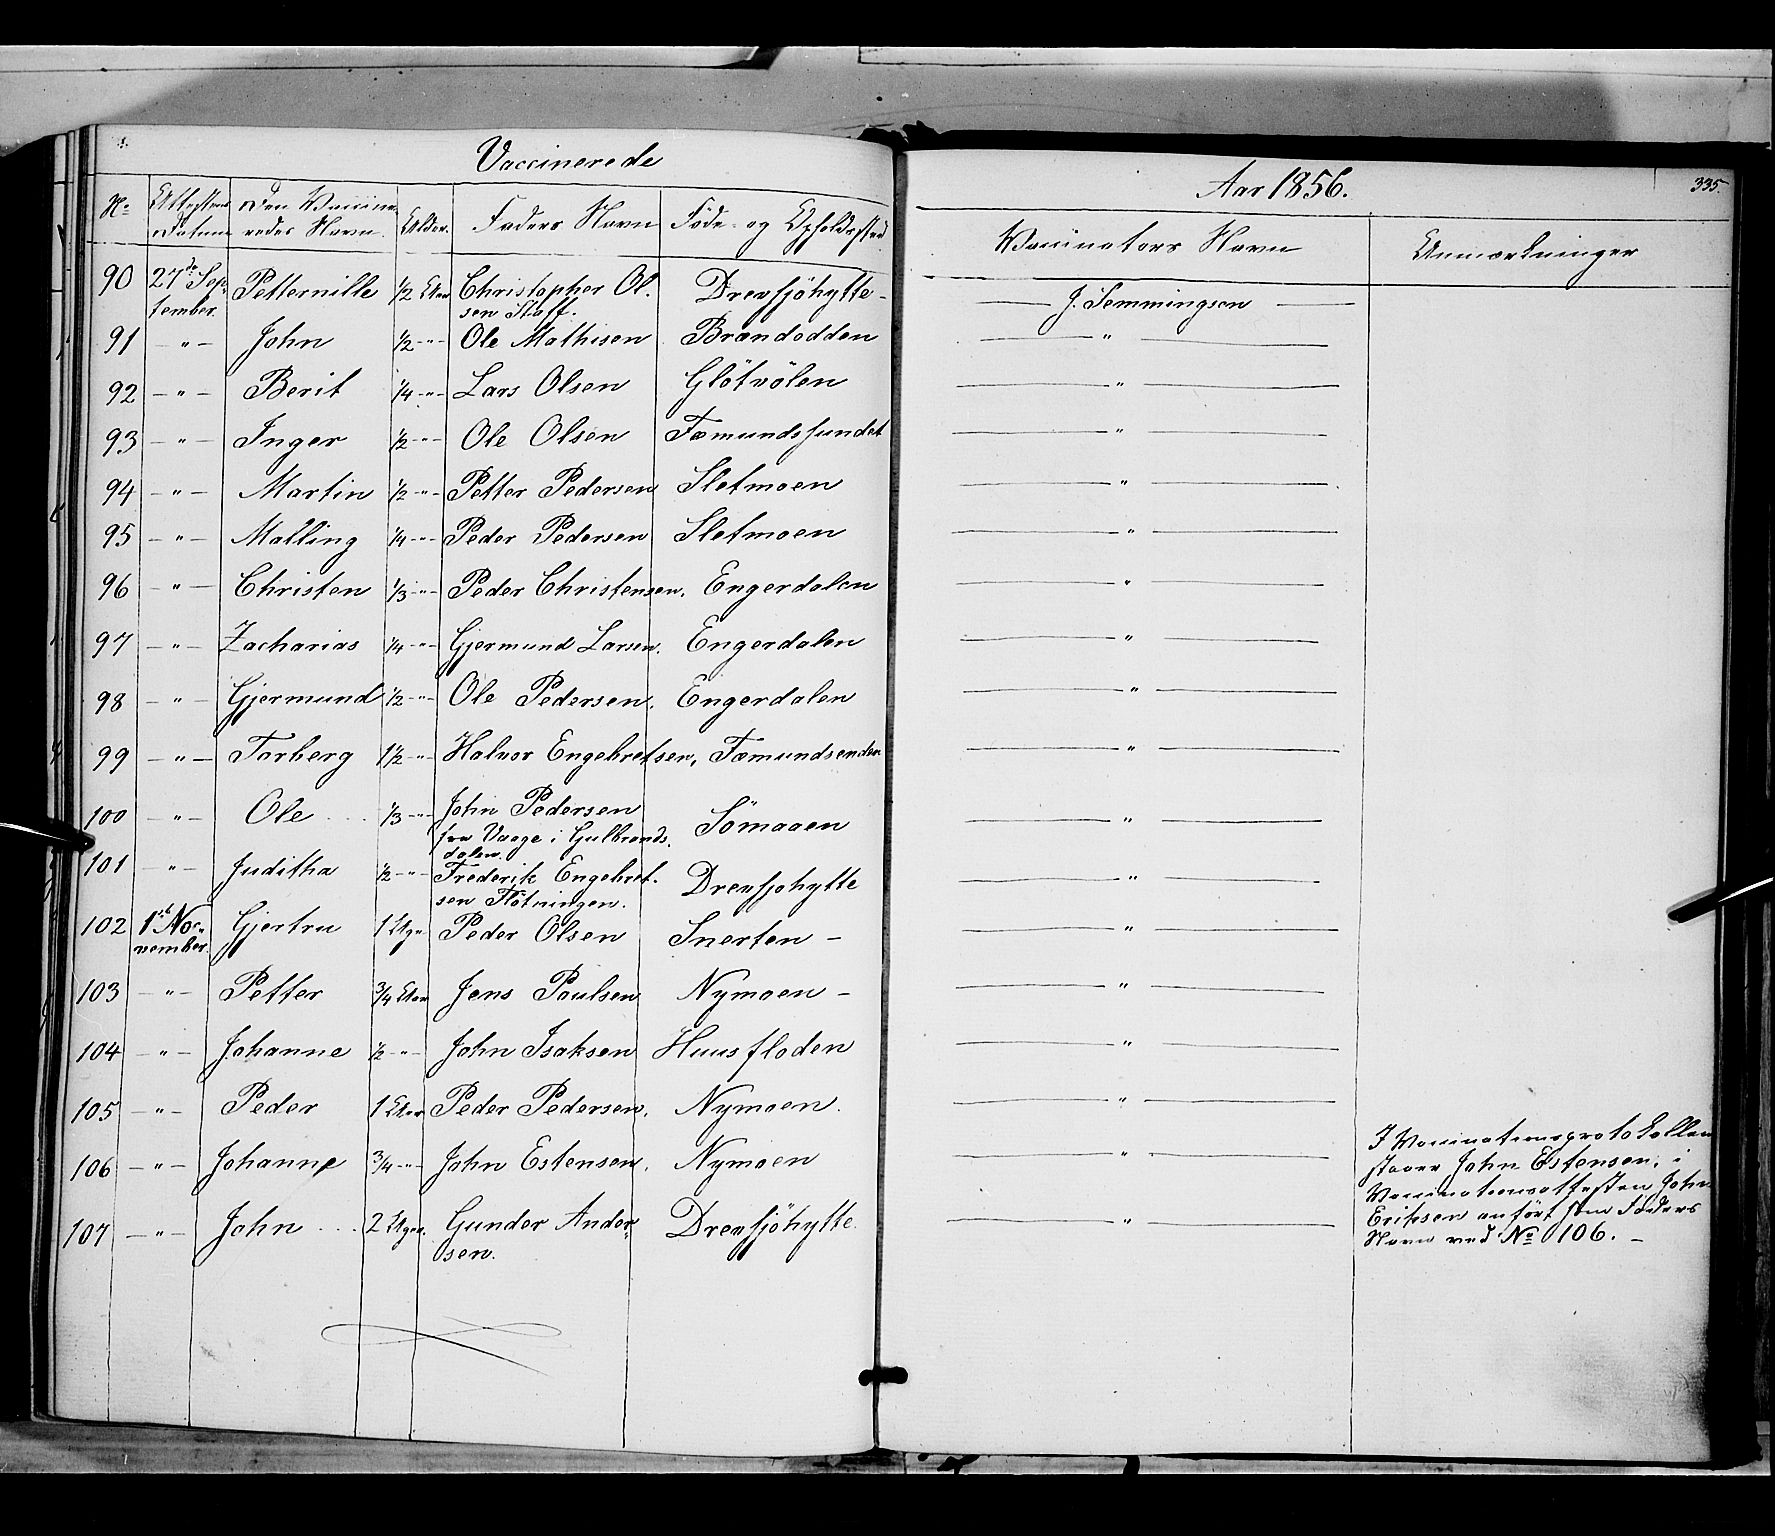 Vaccinerede
Aar 1856.
335.
No Attestens Datum Den Vaccineredes Navn. Alder. Faders Navn Föde- og Opholdssted Vaccinators Navn Anmærkninger
90 27de September. Petternille 1/2 Aar Christopher Olsen Staff. Drevsjöhytte - J. Semmingsen
91 -"- John 1/2 -"- Ole Mathisen Brandodden "
92 -"- Berit 1/4 -"- Lars Olsen Glötvölen "
93 -"- Inger 1/2 -"- Ole Olsen Fæmundssundet "
94 -"- Martin 1/2 -"- Petter Pedersen Sletmoen "
95 -"- Malling 1/4 -"- Peder Pedersen Sletmoen "
96 -"- Christen 1/3 -"- Peder Christensen. Engerdalen "
97 -"- Zacharias 1/4 -"- Gjermund Larsen. Engerdalen "
98 -"- Gjermund 1/2 -"- Ole Pedersen. Engerdalen "
99 -"- Torberg 1 1/2 -"- Halvor Engebretsen, Fæmundsenden "
100 -"- Ole 1/3 -"- John Pedersen
fra Vaage i Gulbrands.
dalen. Sömaaen "
101 -"- Juditha 1/2 -"- Frederik Engebret-
sen Flötningen. Drevsjohytte "
102 1st November. Gjertru 1 Uge Peder Olsen Snerten - "
103 -"- Petter 3/4 Aar Jens Paulsen Nymoen - "
104 -"- Johanne 1/2 -"- John Isaksen Huusfloden "
105 -"- Peder 1 Aar Peder Pedersen. Nymoen. "
106 -"- Johanne 3/4 -"- John Estensen. Nymoen "
107 -"- John 2 Uger. Gunder Ander-
sen. Drevsjöhytte. "
I Vaccinationsprotokollen
staaer John Estensen, i
Vaccinationsattesten John
Eriksen anfört som Faders
Navn ved No 106. -